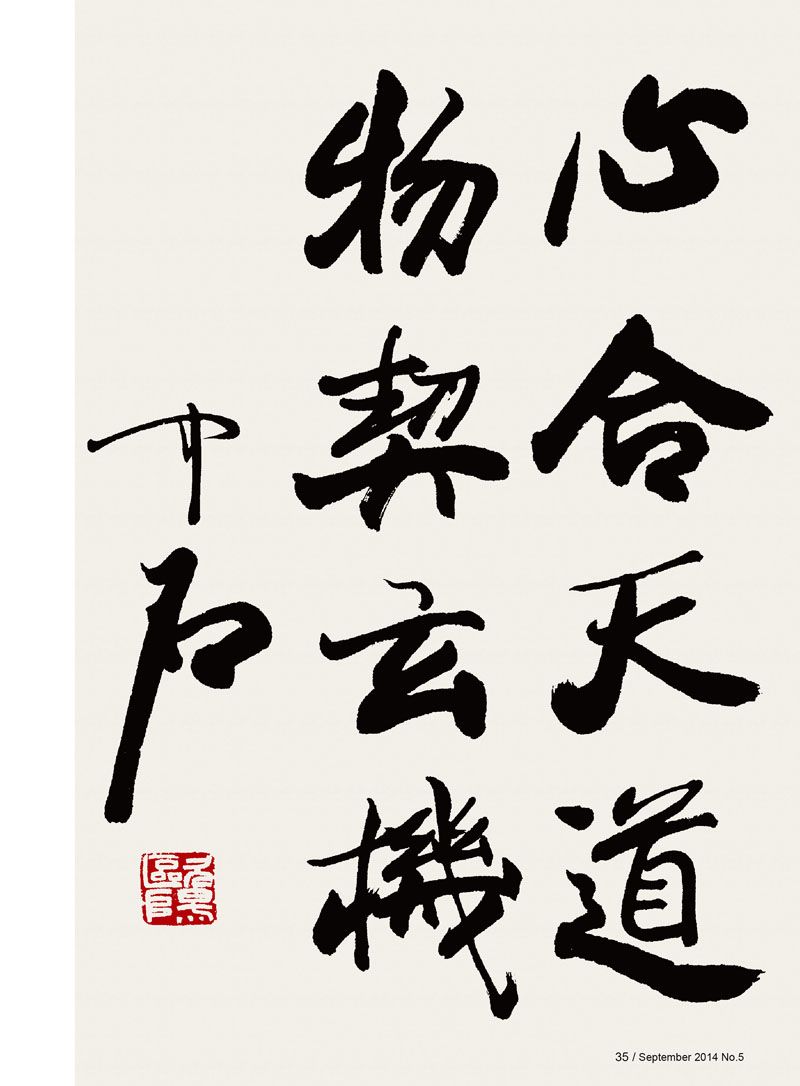 心合天道
物契玄機
中石
35 / September 2014 No.5